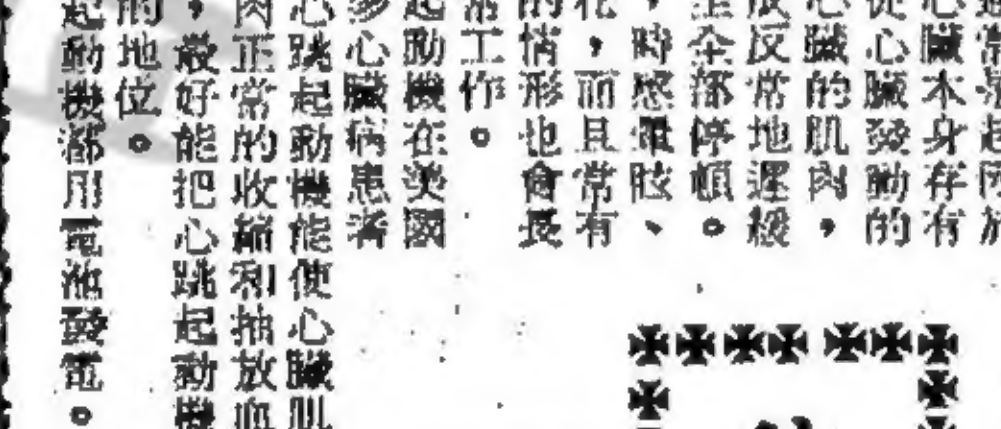 通常是起因於
心臟本身存有
從心臟發動的
心臟的肌肉，
反反常地遲緩
至全部停頓。
，時感雖肢、
花，而且常有
的情形也會長
常工作。
起動機在美國
多心臟病患者
心跳起動機能使心臟肌
肉正常的收縮和抽放血
，最好能把心跳起動機
的地位。
起動機都用電池發電。